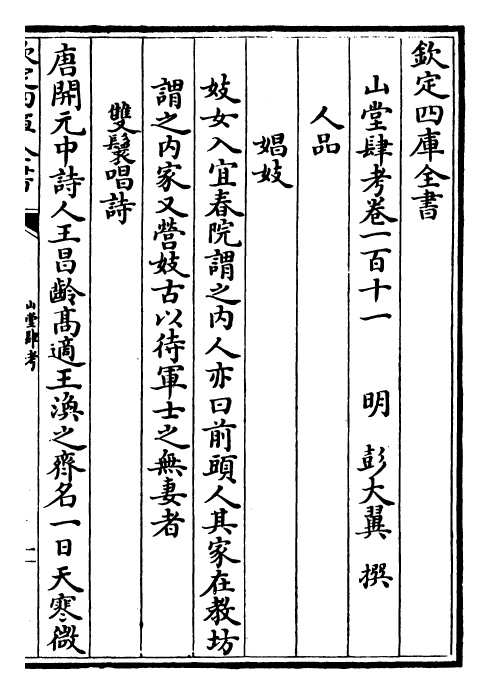 欽定四庫全書
山堂肆考卷一百十一 明 彭大翼 撰
人品
娼妓
妓女入宜春院謂之内人亦曰前頭人其家在教坊
謂之内家又營妓古以待軍士之無妻者
雙鬟唱詩
唐開元中詩人王昌齡高適王渙之齊名一日天寒微
欽定四庫全書
山堂肆考
一